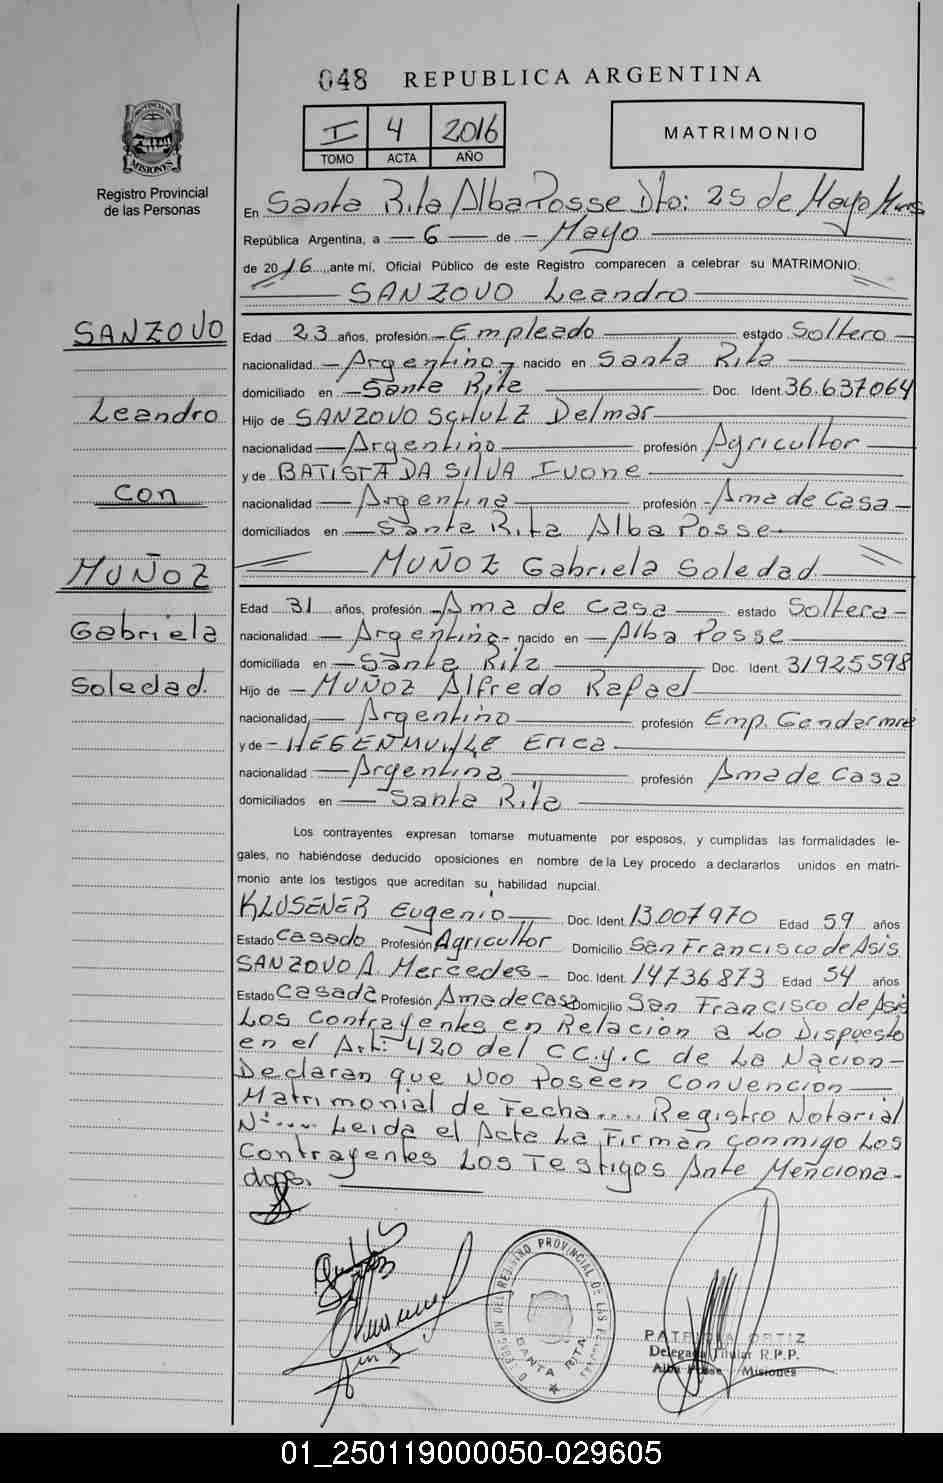 048 REPUBLICA ARGENTINA
I 4 2016
TOMO ACTA AÑO
MATRIMONIO
PROVINCIA DE MISIONES
Registro Provincial
de las Personas
En Santa Rita Alba Posse Dto: 25 de Mayo Mnes
República Argentina, a — 6 — de — Mayo
de 2016, ante mí, Oficial Público de este Registro comparecen a celebrar su MATRIMONIO:
SANZOVO Leandro
SANZOVO
Leandro
con
MUÑOZ
Gabriela
Soledad.
Edad 23 años, profesión Empleado estado Soltero
nacionalidad Argentino nacido en Santa Rita
domiciliado en Santa Rita Doc. Ident. 36.637064
Hijo de SANZOVO SCHULZ Delmar
nacionalidad Argentino profesión Agricultor
y de BATISTA DA SILVA Ivone
nacionalidad Argentina profesión Ama de Casa
domiciliados en Santa Rita Alba Posse
MUÑOZ Gabriela Soledad
Edad 31 años, profesión Ama de Casa estado Soltera
nacionalidad Argentina nacido en Alba Posse
domiciliada en Santa Rita Doc. Ident. 31925598
Hijo de MUÑOZ Alfredo Rafael
nacionalidad Argentino profesión Emp. Gendarmre
y de Erica
nacionalidad Argentina profesión Ama de Casa
domiciliados en Santa Rita
Los contrayentes expresan tomarse mutuamente por esposos, y cumplidas las formalidades le-
gales, no habiéndose deducido oposiciones en nombre de la Ley procedo a declararlos unidos en matri-
monio ante los testigos que acreditan su habilidad nupcial.
KLUSENER Eugenio Doc. Ident. 13.007970 Edad 59 años
Estado Casado Profesión Agricultor Domicilio San Francisco de Asis
SANZOVO A. Mercedes Doc. Ident. 14736873 Edad 54 años
Estado Casada Profesión Ama de Casa Domicilio San Francisco de Asis
Los Contrayentes en Relacion a Lo Dispuesto
en el Art: 420 del C C.y.C de La Nacion
Declaran que NOO Poseen Convencion
Matrimonial de Fecha.... Registro Notarial
Nº.... Leida el Acta La Firman conmigo Los
Contrayentes Los Testigos Ante Menciona-
dos.
DELEGACION DEL REGISTRO PROVINCIAL DE LAS PERSONAS
SANTA RITA
PATRICIA ORTIZ
Delegada Titular R.P.P.
Alba Posse Misiones
01_250119000050-029605